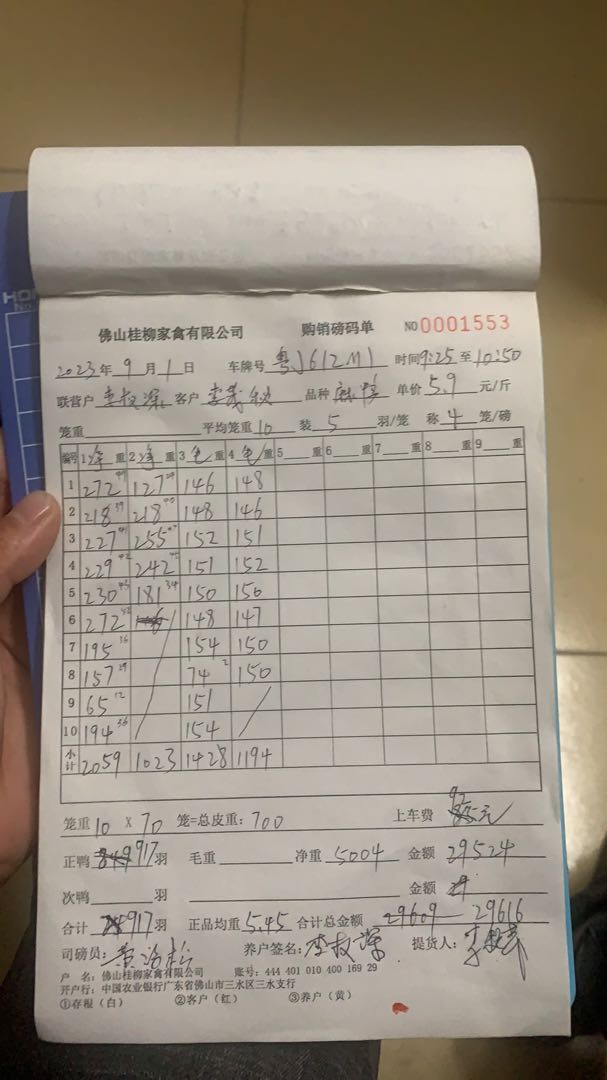 佛山桂柳家禽有限公司 购销磅码单 NO 0001553
2023年 9月 1日 车牌号 粤J612M1 时间9:25至10:50
联营户 李权深 客户 品种 单价5.9元/斤
笼重 平均笼重10 装5羽/笼 称4笼/磅
编号 1净重 2净重 3毛重 4毛重 5 重 6 重 7 重 8 重 9 重
1 272 127 146 148
2 218 39 218 148 146
3 227 255 152 151
4 229 42 242 151 152
5 230 43 181 34 150 156
6 272 148 147
7 195 36 154 150
8 157 29 74 2 150
9 65 12 151
10 194 36 154
小计 2059 1023 1428 1194
笼重10 X 70 笼=总皮重:700 上车费 92元
正鸭 917羽 毛重 净重5004 金额29524
次鸭 羽 金额
合计 917羽 正品均重5.45 合计总金额 29609 29616
司磅员: 养户签名:李权深 提货人:
户 名:佛山桂柳家禽有限公司 账号:444 401 010 400 169 29
开户行:中国农业银行广东省佛山市三水区三水支行
①存根(白) ②客户(红) ③养户(黄)